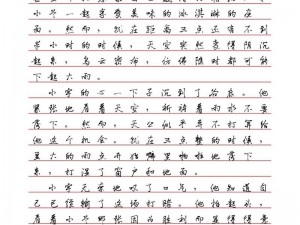 小芳一起享受美味的冰淇淋的在
面。然而，就在距离三点还有不到
半小时的时候，天空突然变得阴沉
起来，乌云密布，仿佛随时都可能
下起大雨。
小宇的心一下子沉到了谷底。他
紧张地看着天空，祈祷着雨水不要
落下。然而，天公似乎不打算给
他这个机会。就在三点整的时候，
豆大的雨点开始噼里啪啦地落下
来，打湿了窗户和地面。
小宇无奈地叹了口气，他知道自
己已经输掉了这场打赌。他抬起头，
看着小芳那张因为胜利而显得得意